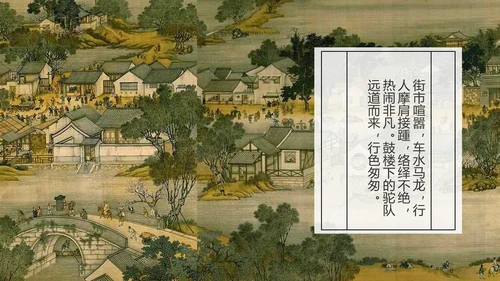 街市喧嚣，车水马龙，行
人摩肩接踵，络绎不绝，
热闹非凡。鼓楼下的驼队
远道而来，行色匆匆。